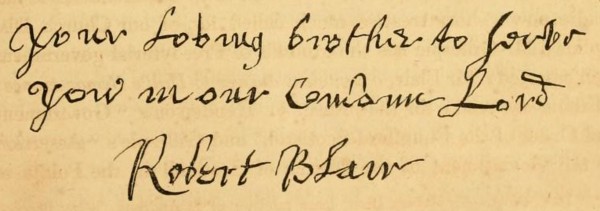 your loving brother to serve
yow in our Comon Lord
Robert Blair